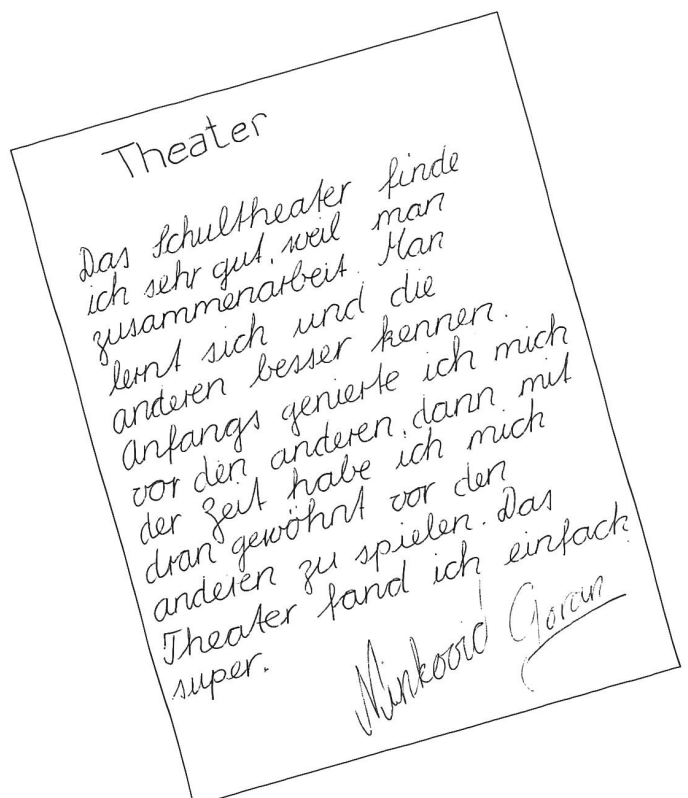 Theater
Das Schultheater finde
ich sehr gut, weil man
zusammenarbeit. Man
lernt sich und die
anderen besser kennen.
Anfangs genierte ich mich
vor den anderen, dann mit
der Zeit habe ich mich
dran gewöhnt vor den
anderen zu spielen. Das
Theater fand ich einfach
super.
Ninkovic Goran